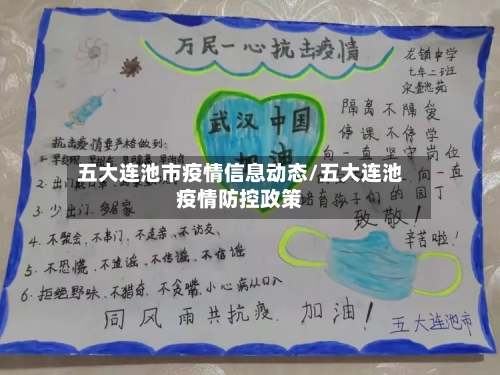 万民一心抗击疫情
龙镇中学
七年二班
武汉 中国
加油
隔离不隔爱
停课不停学
向一直坚守岗位
向一直
孩子们的园丁
致敬!
辛苦啦!
抗击疫情要严格做到:
五大连池市疫情信息动态/五大连池
疫情防控政策
3. 少出门、多居家
4. 不聚会、不串门、不走亲、不访友、
5. 不恐慌、不造谣、不信谣、不传谣
6. 拒绝野味、不猎奇、不贪嘴、小心病从口入
同风雨共抗疫 加油!
五大连池市